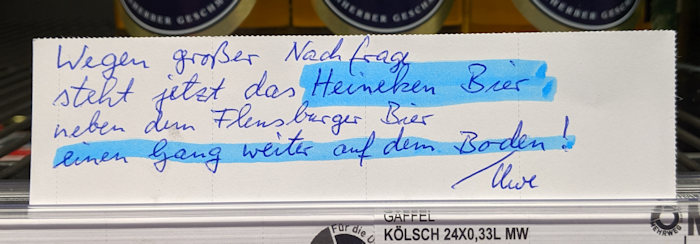 HERBER GESCHM
HERBER GESCHM
Wegen großer Nachfrage
steht jetzt das Heineken Bier
neben dem Flensburger Bier
einen Gang weiter auf dem Boden!
Uwe
Für die
GAFFEL
KÖLSCH 24X0,33L MW
MEHRWEG